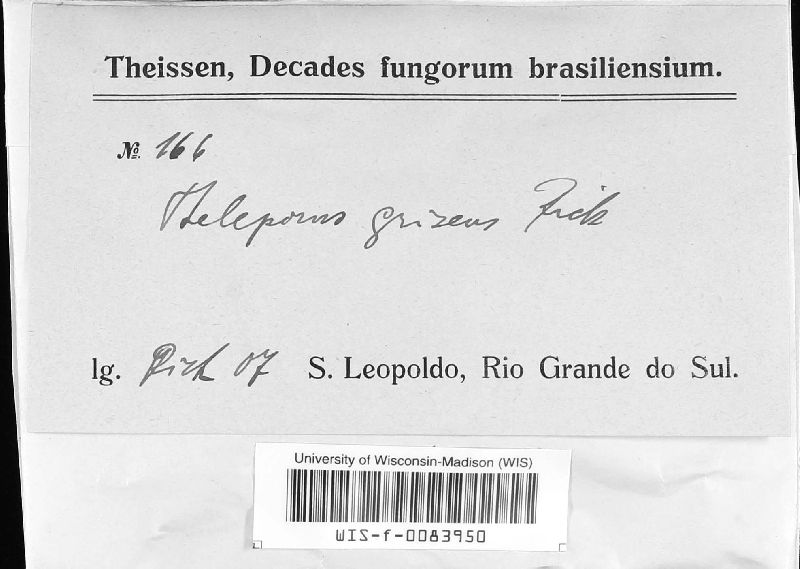 Theissen, Decades fungorum brasiliensium.
№ 166
Theleporus griseus Rick
lg. Rick 07 S. Leopoldo, Rio Grande do Sul.
University of Wisconsin-Madison (WIS)
WIS-f-0083950